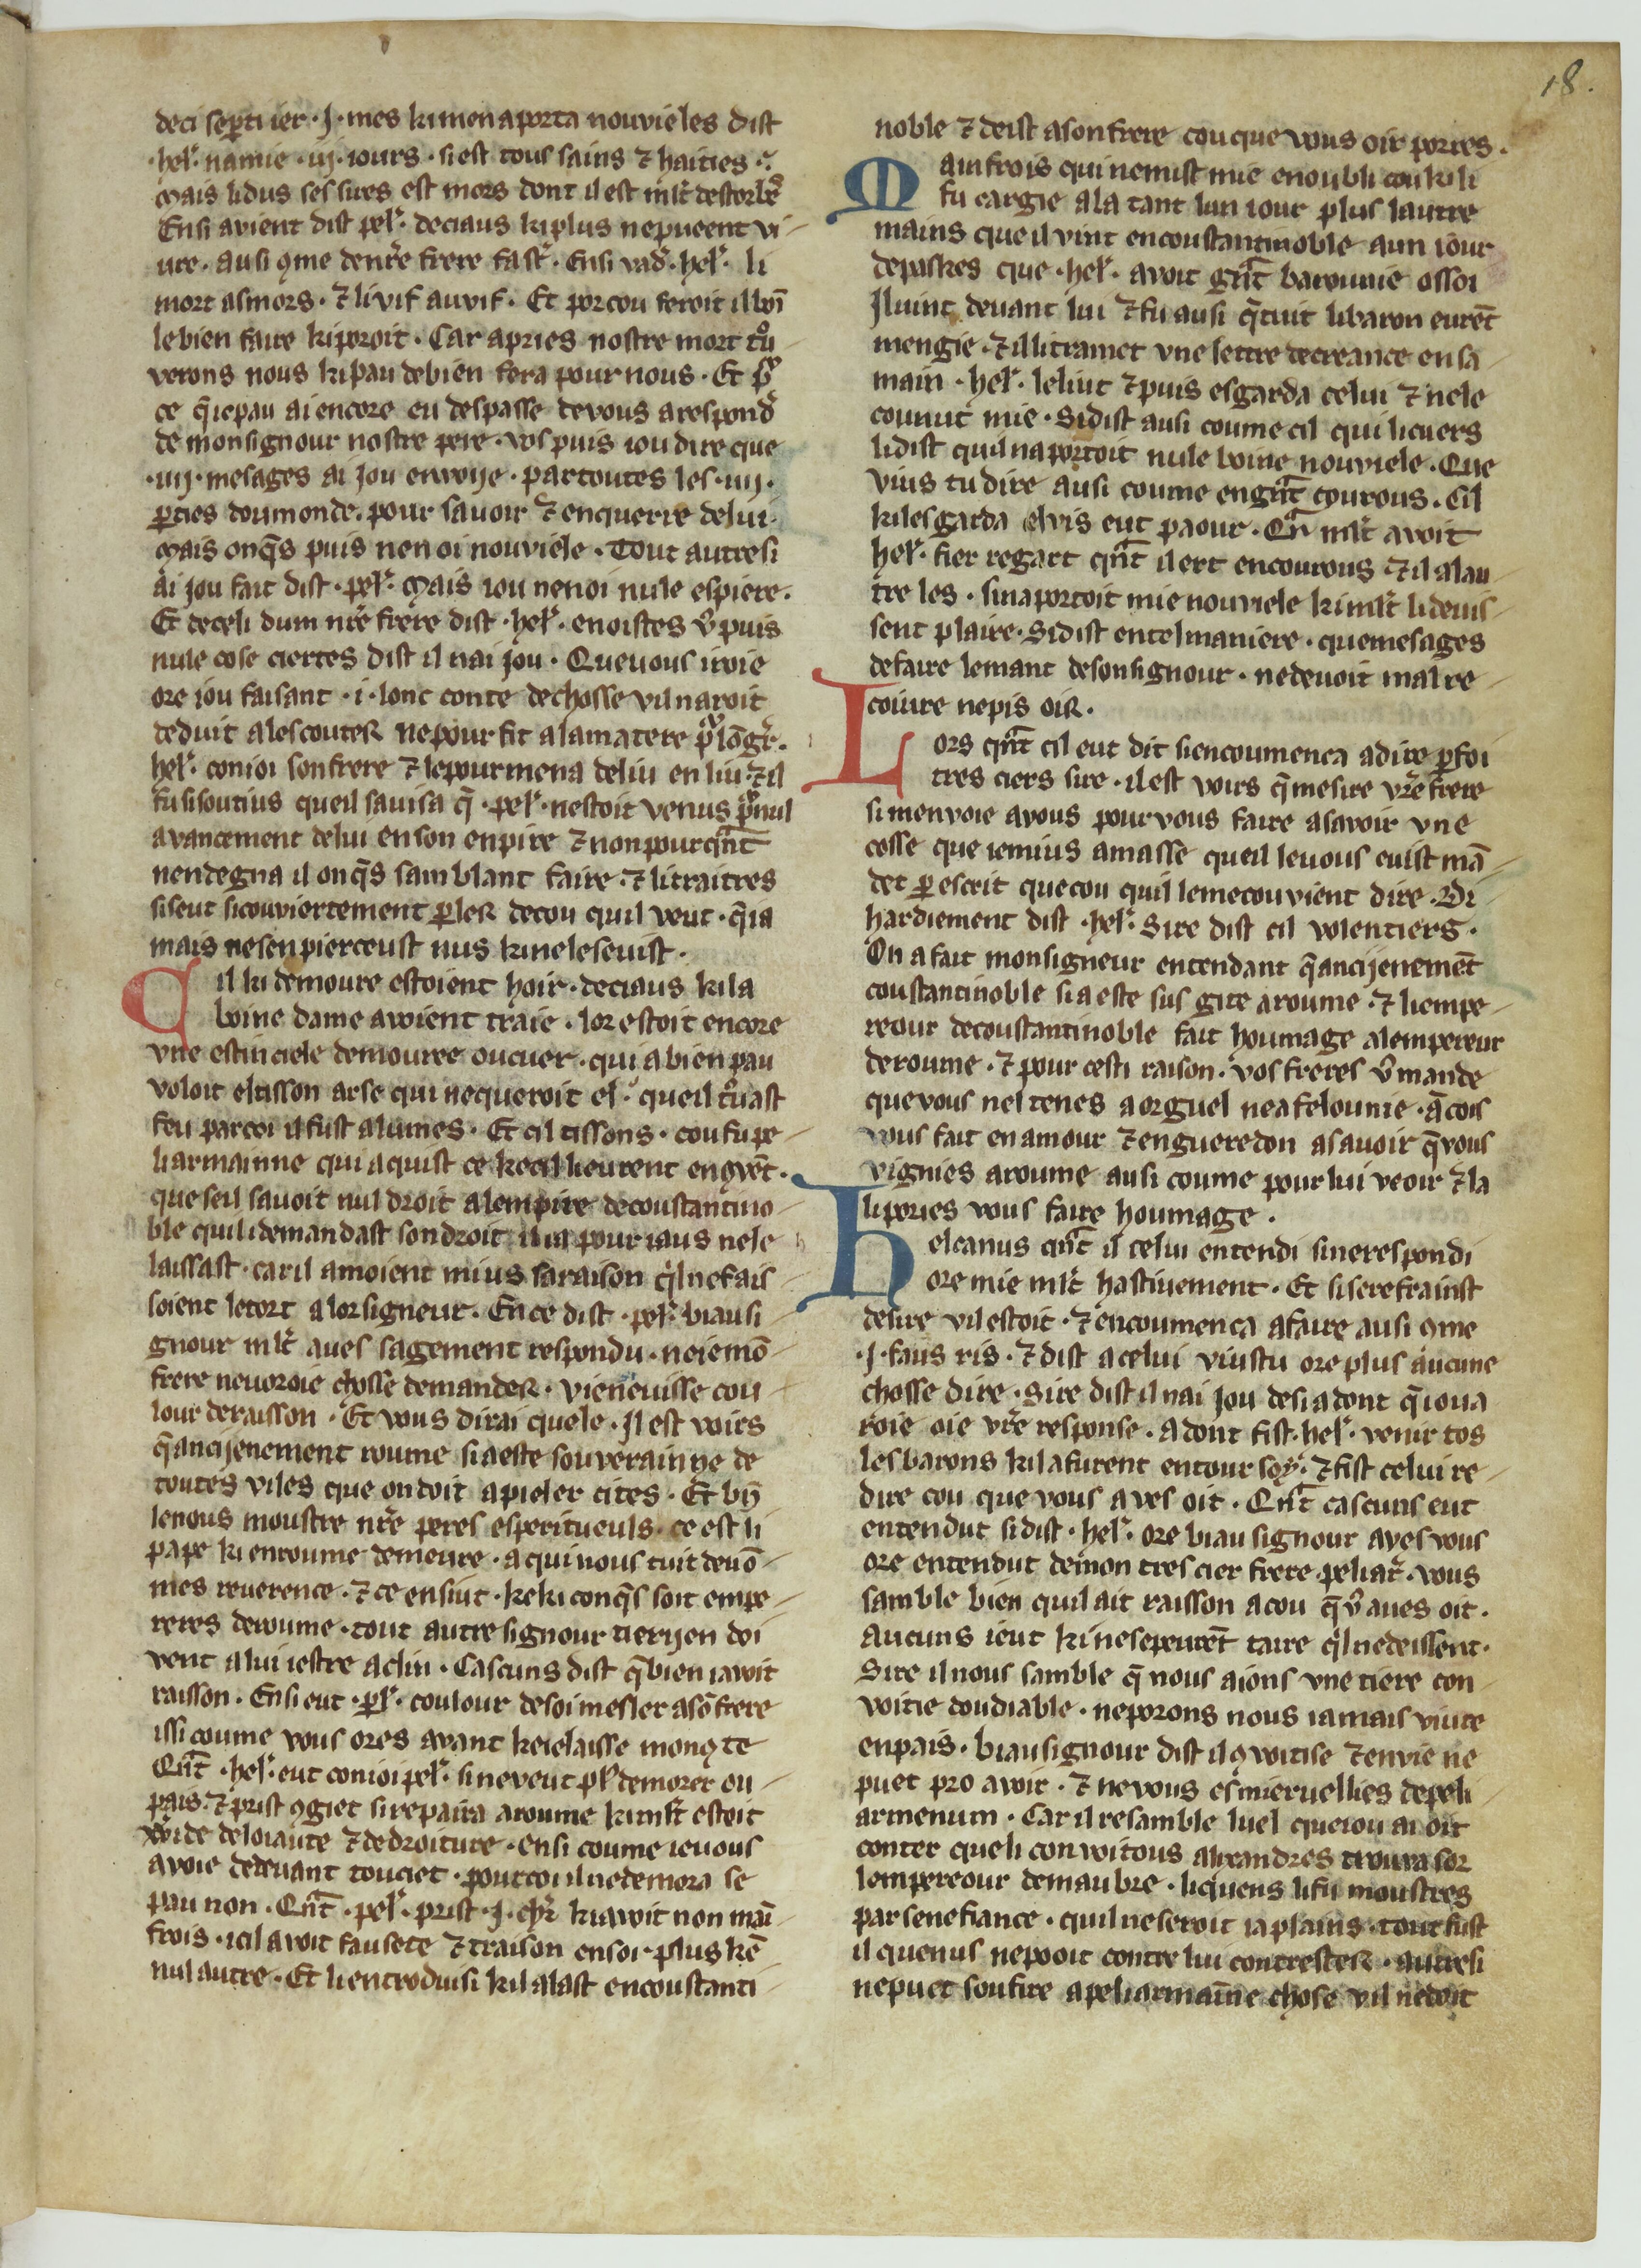 18.
deci septi ier · J · mes ki men aporta nouvieles dist
· hel'. namie · iij · iours · si est tous sains ⁊ haities ·
mais lidus ses sires est mors dont il est ml't destorbe
Ensi avient dist pel'. de ciaus ki plus ne pueent vi-
ure · ausi ꝯme de nr̄e frere fast'. Ensi vad'. hel'. li
mort as mors · ⁊ li vif au vif · Et por cou feroit il boī
le bien faire ki poroit · Car apries nostre mort tͦu
verons nous ki pau de bien fera pour nous · Et pͦ
ce q̄ ie pau ai encore eu despasse de vous a respond'
de monsignour nostre pere · vos puis iou dire que
· iiij · mesages ai jou envoije · par toutes les · iiij ·
ꝑties dou monde · pour savoir ⁊ enquerre de lui ·
Mais onq̄s puis nen oi nouviele · Tout autresi
ai jou fait dist · pel'. Mais iou nen oi nule espiere ·
Et de celi dum nr̄e frere dist · hel'. en oistes v̄ puis
nule cose ciertes dist il nai jou · Que vous iroie
ore iou faisant · i · lonc conte de chosse v il naroit
deduit a lescouter ne pourfit a la matere pͦ lōgr̄ ·
hel'. conioi son frere ⁊ le pourmena de liu en liu · ⁊ il
fu si soutius que il savisa q̄ · pel'. nestoit venus pͦ nul
avancement de lui en son enpire ⁊ non pour qn̄t
nen degna il onq̄s samblant faire · ⁊ li traitres
si seut si couviertement ꝑler de cou quil veut · q̄ ia
mais ne sen pierceust nus ki ne le seuist ·
Cil ki demoure estoient hoir · de ciaus ki la
boine dame avoient traie · lor estoit encore
vne estinciele demouree ou cuer · qui a bien pau
voloit el tisson arse qui ne queroit el · que il tͦuast
feu par coi il fust alumes · Et cil tissons · cou fu pe-
liarmainne qui aquist ce ke cil li eurent en ꝯvēt ·
que se il savoit nul droit a lempire de coustantino-
ble quil i demandast son droit il ia pour iaus ne le
laissast · car il amoient mius sa raison q̓l ne fais-
soient le tort a lor signeur · En ce dist · pel'. biau si
gnour ml't aves sagement respondu · ne ie mō
frere ne voroie chosse demander · v ie neuisse cou
lour de raisson · Et vous dirai quele · Il est voirs
q̄ ancijenement roume si a este souverainne de
toutes viles que on doit apieler cites · Et bn̄
le nous moustre nr̄e peres esperitueuls · ce est li
pape ki en roume demeure · a qui nous tuit devō-
mes reverence · ⁊ ce ensiut · ke ki conq̄s soit empe-
reres de roume · tout autre signour tierijen doi
vent a lui iestre aclin · Cascuns dist q̄ bien i avoit
raisson · Ensi eut · pl'. coulour de soi mesler a sō frere
issi coume vous ores avant ke ie laisse mon ꝯte
Qn̄t · hel'. eut conioi pel'. si ne veut pl' demorer ou
pais · ⁊ prist ꝯgiet si repaira a roume ki ml't estoit
wide de loiaute ⁊ de droiture · ensi coume ie vous
avoie de devant touciet · pour cou il ne demora se
pau non · Qn̄t · pel'. prist · J · chr̄ ki avoit non mai-
frois · icil avoit fausete ⁊ traison en soi · plus ke
nul autre · Et li entroduisi kil alast en coustanti-
noble ⁊ deist a son frere cou que vous oir pores ·
Mainfrois qui ne mist mie en oubli cou ki li
fu cargie ala tant lun iour plus lautre
mains que il vint en coustantinoble a un iour
de paskes que · hel'. avoit gn̄t barounie o soi
Il vint devant lui ⁊ fu ausi q̄ tuit li baron eurēt
mengie · ⁊ il li tramet vne lettre de creance en sa
main · hel'. le liut ⁊ puis esgarda celui ⁊ ne le
counut mie · Si dist ausi coume cil qui li cuers
li dist quil naportoit nule boine nouviele · Que
vius tu dire ausi coume en gn̄t courous · Cil
ki lesgarda el vis eut paour · Car ml't avoit
hel'. fier regart qn̄t il ert en courous ⁊ il a lau-
tre les · si naportoit mie nouviele ki ml't li deuis-
sent plaire · Si dist en tel maniere · que mesages
de faire le mant de son signour · ne devoit mal re-
coivre ne pis oir ·
Lors qn̄t cil eut dit si encoumenca a dire ꝑ foi
tres ciers sire · il est voirs q̄ mesire vr̄e frere
si menvoie a vous pour vous faire a savoir vne
cosse que ie mius amasse que il le vous euist mā-
det ꝑ escrit que cou quil le me couvient dire · Di
hardiement dist · hel'. Sire dist cil volentiers ·
On a fait monsigneur entendant q̄ ancijenemēt
coustantinoble si a este sus gite a roume · ⁊ li empe-
reour de coustantinoble fait houmage a lempereur
de roume · ⁊ pour cesti raison · vos freres v̄ mande
que vous nel tenes a orguel ne a felounie · ācois
vous fait en amour ⁊ en gueredon a savoir q̄ vous
vignies a roume ausi coume pour lui veoir ⁊ la
li pories vous faire houmage ·
Helcanus qn̄t il celui entendi si ne respondi
ore mie ml't hastiuement · Et si se refrainst
de lire v il estoit · ⁊ encoumenca a faire ausi ꝯme
· J · faus ris · ⁊ dist a celui viustu ore plus aucune
chosse dire · Sire dist il nai jou desi a dont q̄ iou a
roie oie vr̄e response · a dont fist · hel'. venir tos
les barons ki la furent entour soy · ⁊ fist celui re-
dire cou que vous aves oit · Qn̄t cascuns eut
entendut si dist · hel'. ore biau signour aves vous
ore entendut de mon tres cier frere peliar̄ · vous
samble bien quil ait raisson a cou q̄ v̄ aves oit ·
aucuns ieut ki ne se peurēt taire q̓l ne deissent ·
Sire il nous samble q̄ nous aions vne tiere con-
voitie dou diable · ne porons nous iamais viure
en pais · biau signour dist il ꝯwitise ⁊ envie ne
puet pro avoir · ⁊ ne vous esmiervellies de peli
armenum · Car il resamble luel que iou ai oit
conter que li convoitous alixandres trouva sor
lempereour de maubre · li quens li fu moustres
par senefiance · quil ne seroit ia plains · tout fust
il que nus ne pooit contre lui contrester · autresi
ne puet soufire a peliarmainne chose v il ne doit